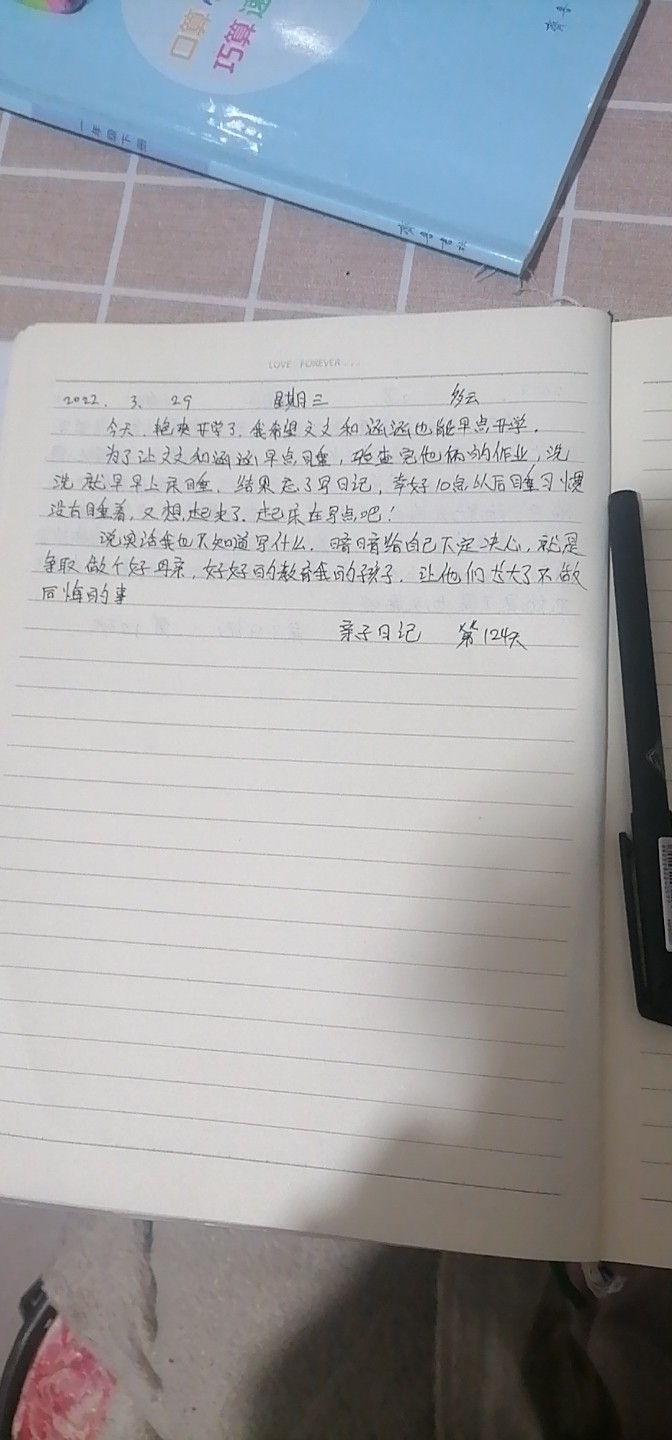 口算
巧算
一年级下册
LOVE FOREVER...
2022. 3. 29 星期三 多云
今天,艳爽开学了,我希望文文和涵涵也能早点开学。
为了让文文和涵涵早点睡,检查完他俩的作业,洗
洗就早早上床睡,结果忘了写日记,幸好10点以后睡习惯
没有睡着,又想起来了,起床在写点吧!
说实话我也不知道写什么,暗暗给自己下定决心,就是
争取做个好母亲,好好的教育我的孩子,让他们长大了不做
后悔的事
亲子日记 第124天